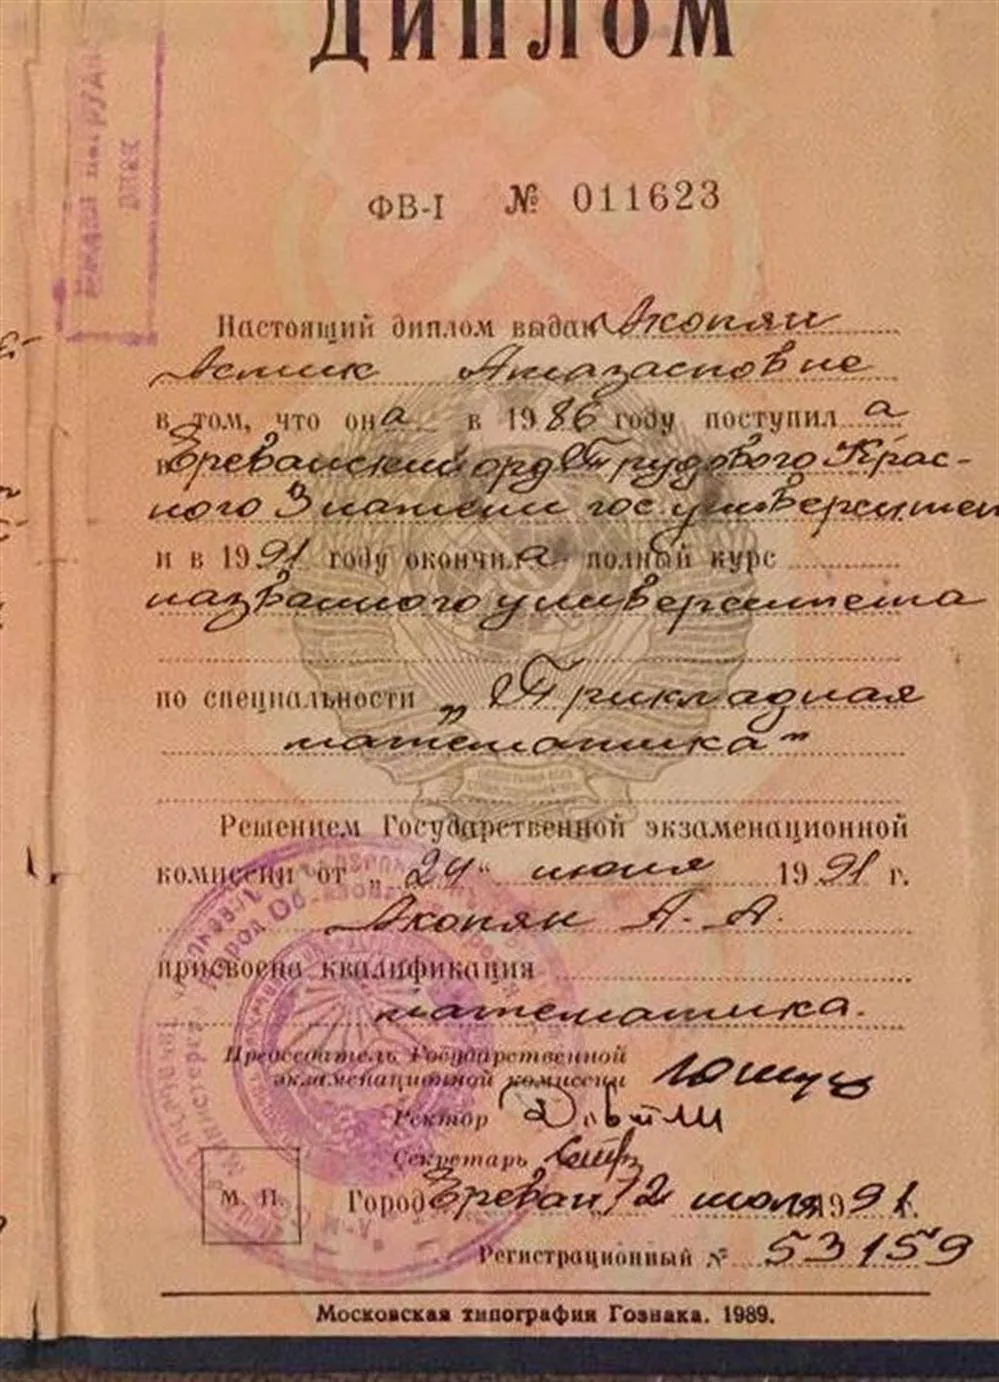 ДИПЛОМ
ФВ-I № 011623
Настоящий диплом выдан Акопян
Астик Амазасповне
в том, что она в 1986 году поступил а
в Ереванский орд. Трудового Крас-
ного Знамени гос. университет
и в 1991 году окончила полный курс
названного университета
по специальности „Прикладная
математика"
Решением Государственной экзаменационной
комиссии от „24" июня 1991 г.
Акопян А. А.
присвоена квалификация
математика.
Председатель Государственной
экзаменационной комиссии
Ректор
Секретарь
М. П.
Город Ереван, 2 июля 1991.
Регистрационный № 53159
Московская типография Гознака. 1989.